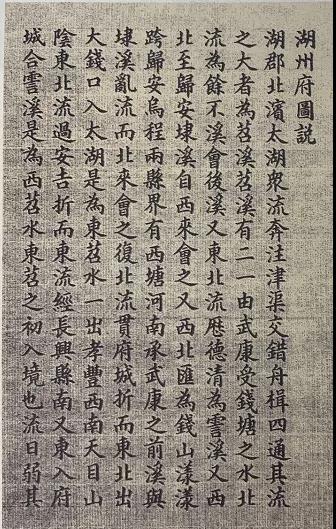 湖州府圖説
湖郡北濱太湖衆流奔注津渠交錯舟楫四通其流
之大者為苕溪苕溪有二一由武康受錢塘之水北
流為餘不溪會後溪又東北流歴德清為霅溪又西
北至歸安埭溪自西來會之又西北匯為錢山漾漾
跨歸安烏程兩縣界有西塘河南承武康之前溪與
埭溪亂流而北來會之復北流貫府城折而東北出
大錢口入太湖是為東苕水一出孝豐西南天目山
陰東北流過安吉折而東流經長興縣南又東入府
城合霅溪是為西苕水東苕之初入境也流日弱其